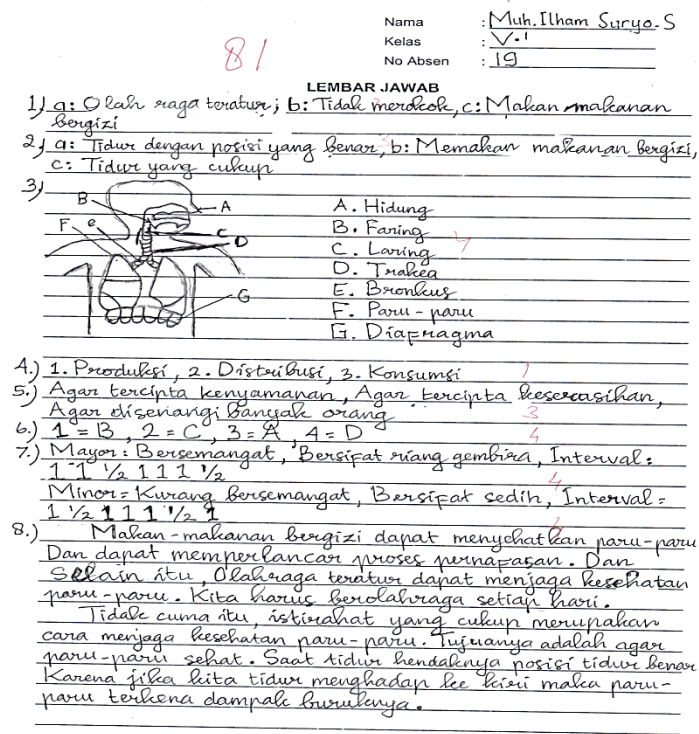 Nama : Muh. Ilham Suryo. S
Kelas : V.1
No Absen : 19
81
LEMBAR JAWAB
1) a: Olah raga teratur; b: Tidak merokok, c: Makan makanan
bergizi
2) a: Tidur dengan posisi yang benar, b: Memakan makanan bergizi,
c: Tidur yang cukup
3)
B
A
F
e
C
D
G
A. Hidung
B. Faring
C. Laring
D. Trakea
E. Bronkus
F. Paru-paru
G. Diafragma
4
4.) 1. Produksi, 2. Distribusi, 3. Konsumsi
5.) Agar tercipta kenyamanan, Agar tercipta keserasihan,
Agar disenangi banyak orang 3
6.) 1 = B, 2 = C, 3 = A, 4 = D 4
7.) Mayor: Bersemangat, Bersifat riang gembira, Interval:
1 1 ½ 1 1 1 ½ 4
Minor = Kurang bersemangat, Bersifat sedih, Interval =
1 ½ 1 1 1 ½ 1
8.) Makan-makanan bergizi dapat menyehatkan paru-paru
Dan dapat memperlancar proses pernafasan. Dan
Selain itu, Olahraga teratur dapat menjaga kesehatan
paru-paru. Kita harus berolahraga setiap hari.
Tidak cuma itu, istirahat yang cukup merupakan
cara menjaga kesehatan paru-paru. Tujuanya adalah agar
paru-paru sehat. Saat tidur hendaknya posisi tidur benar
Karena jika kita tidur menghadap ke kiri maka paru-
paru terkena dampak buruknya.